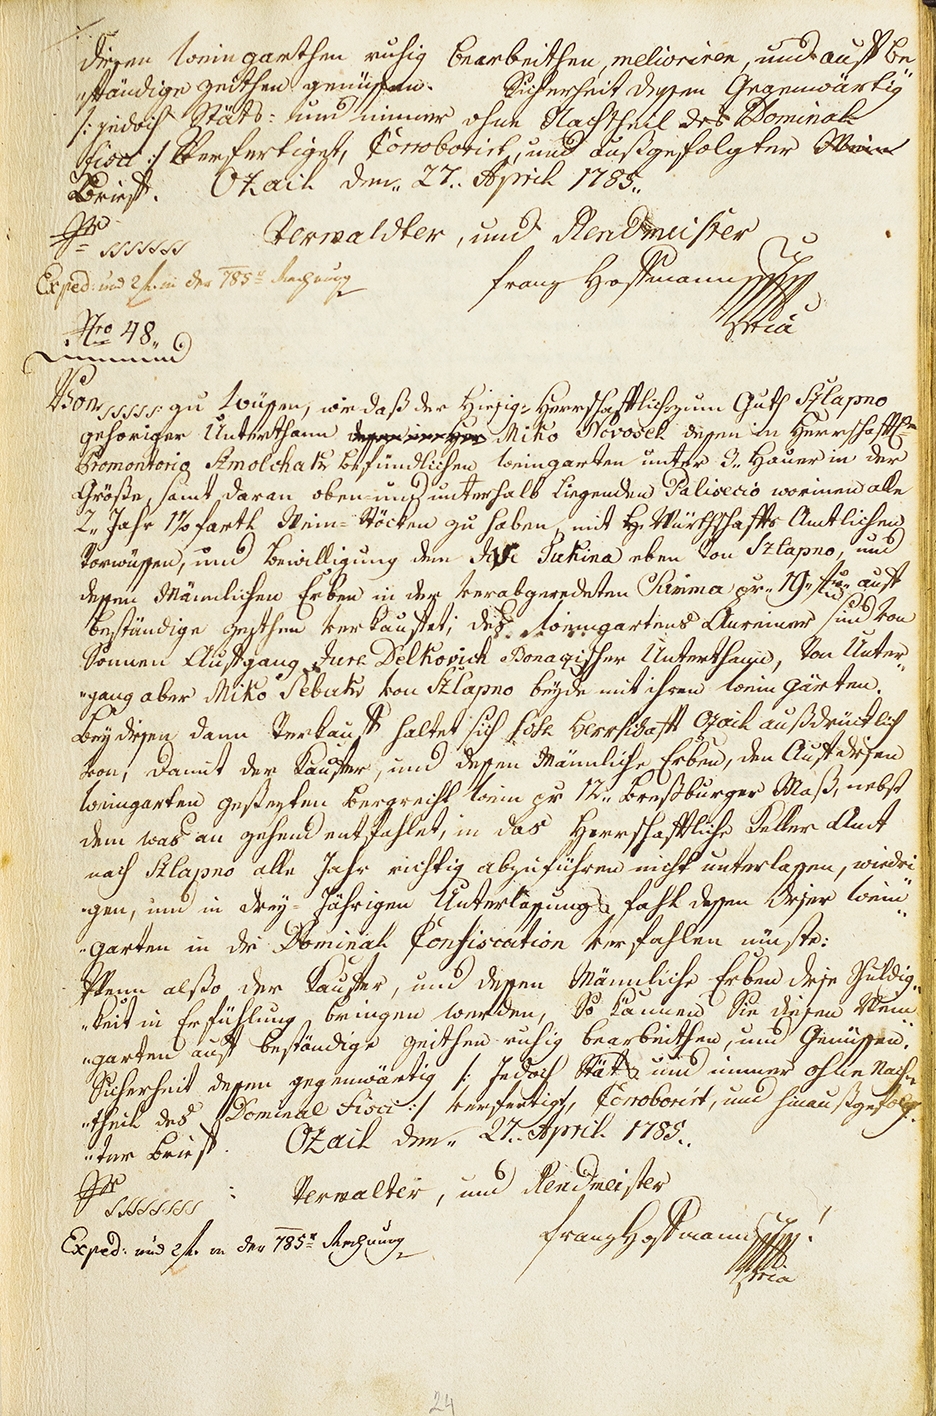 diesen Weingarthen ruhig bearbeithen, melioriren, und auf be
„ständige zeithen genüßen. Sicherheit dessen Gegenwärtig
/: jedoch Stäts- und immer ohne Nachtheil des Dominal
Fisci :/ Verfertiget, Corroborirt, und außgefolgter
Brief. Ozail den „27„ April 1785„
Verwaldter, und Rendmeister
Franz Hoffmann
Exped: und 2 f. in der 785r Rechnung
Nro 48„
Von zu Wüßen, wie daß der hiesig-Herrschaftlich zum Guth Szlapno
gehöriger Unterthann Miko Novosel deßen in Herrschaftl.
Promontorio Smolchak befündlichen Weingarten unter 3„ Hauer in der
Größe, samt daran oben und unterhalb liegenden Palisecio worinen alle
2„ Jahr 1½ farth Wein-Stöcken zu haben, mit H. Würthschaffts Amtlichen
Vorwüßen, und Bewilligung dem Jive Pukina eben von Szlapno, und
deßen Männlichen Erben in der verabgeredeten Summa pr 19„ auf
beständige zeithen verkauffet; dieß Weingartens Anreiner sind von
Sonnen Aufgang Jura Delkovich Bonaqischer Unterthann, von Unter„
„gang aber Miko Sebak von Szlapno beyde mit ihren Weingärten.
Bey diesen dann Verkauff haltet sich Herrschaft Ozail außdrücklich
vor, damit der Kauffer, und deßen Männliche Erben, den Auf diesen
Weingarten gesetzten bergrecht Wein pr 12„ Preßburger Maß, nebst
dem was an zehend entfahlet, in das Herrschaftliche Keller Amt
nach Szlapno alle Jahr richtig abzuführen nicht unterlaßen, wiedri
„gen, und in drey-Jährigen Unterlaßungs fahl deßen dieser Wein„
„garten in die Dominal Confiscation verfahlen müste:
Wenn alßo der Kauffer, und deßen Männliche Erben diese Schuldig„
„keit in Erfühlung bringen werden, So können Sie diesen Wein
„garten auf beständige zeithen ruhig bearbeithen, und Genüßen.
Sicherheit deßen gegenwärtig /: Jedoch Stäts und immer ohne Nach„
„theil des Dominal Fisci :/ verfertigt, Corroborirt, und hinaußgefolg„
„ter Brief. Ozail den „27„ April 1785„
Verwalter, und Rendmeister
Franz Hoffmann
Exped: und 2 f. in der 785r Rechnung
24